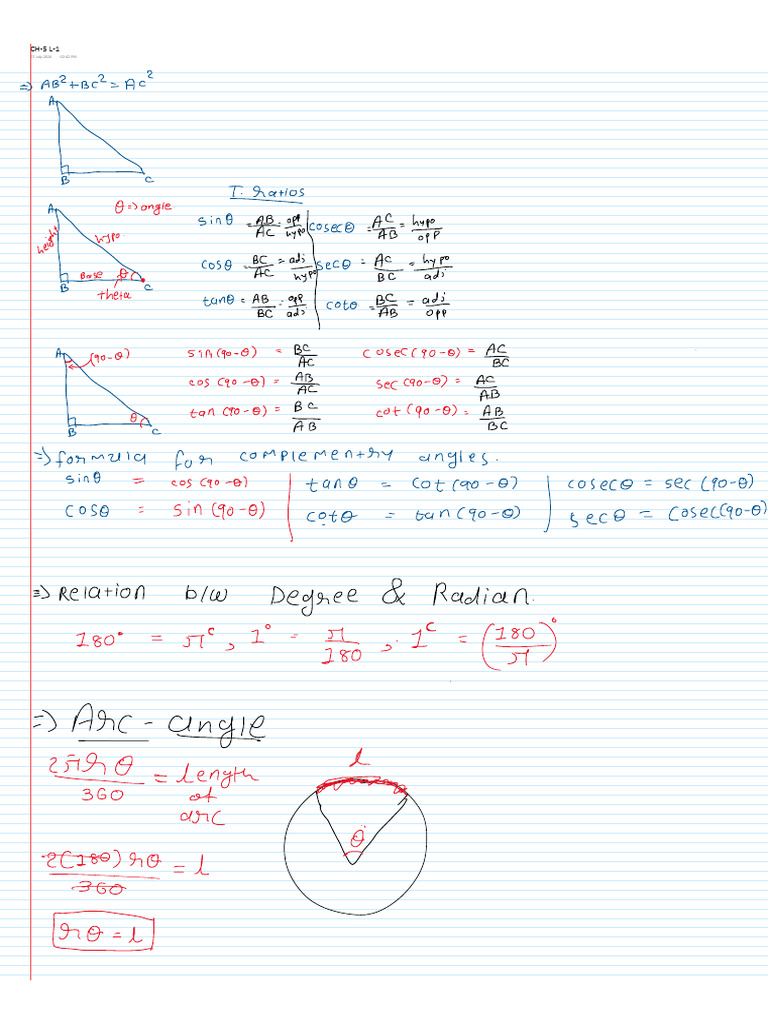 CH-5 L-1
10:42 PM
=> AB² + BC² = AC²
A
B
C
A
θ => angle
height
hypo
Base
θ
B
theta
C
T. ratios
sinθ = AB/AC = opp/hypo | cosecθ = AC/AB = hypo/opp
cosθ BC/AC = adj/hypo | secθ = AC/BC = hypo/adj
tanθ = AB/BC = opp/adj | cotθ = BC/AB = adj/opp
A
(90-θ)
θ
B
C
sin(90-θ) = BC/AC cosec(90-θ) = AC/BC
cos(90-θ) = AB/AC sec(90-θ) = AC/AB
tan(90-θ) = BC/AB cot(90-θ) = AB/BC
=> formula for complementry angles.
sinθ = cos(90-θ) | tanθ = cot(90-θ) | cosecθ = sec(90-θ)
cosθ = sin(90-θ) | cotθ = tan(90-θ) | secθ = cosec(90-θ)
=> Relation b/w Degree & Radian.
180° = πᶜ, 1° = π/180, 1ᶜ = (180/π)°
=> Arc - angle
2πrθ/360 = length of arc
l
θ
2(180)rθ/360 = l
rθ = l